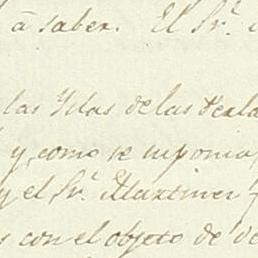 á saber. El Sr.
las Yslas de las Perla
y, como se suponia,
y el Sr. Martinez
con el objeto de